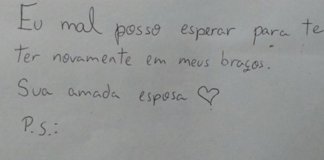 Eu mal posso esperar para te
ter novamente em meus braços.
Sua amada esposa ♡
P.S.: